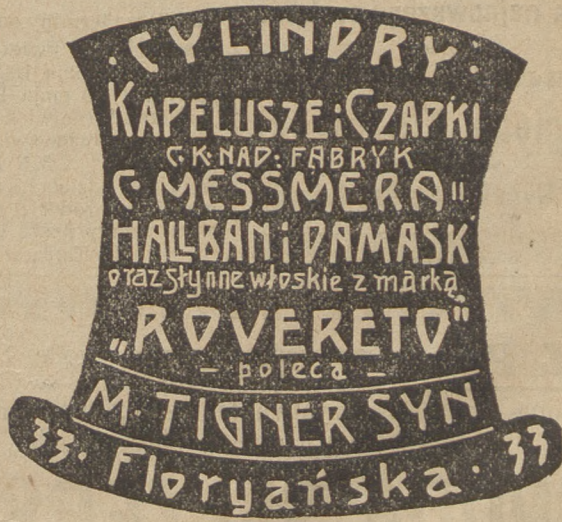 ·CYLINDRY·
KAPELUSZE i CZAPKI
C·K·NAD: FABRYK
C·MESSMERA"
HALLBAN i DAMASK
oraz słynne włoskie z marką
„ROVERETO"
– poleca –
M·TIGNER SYN
33· Floryańska· 33